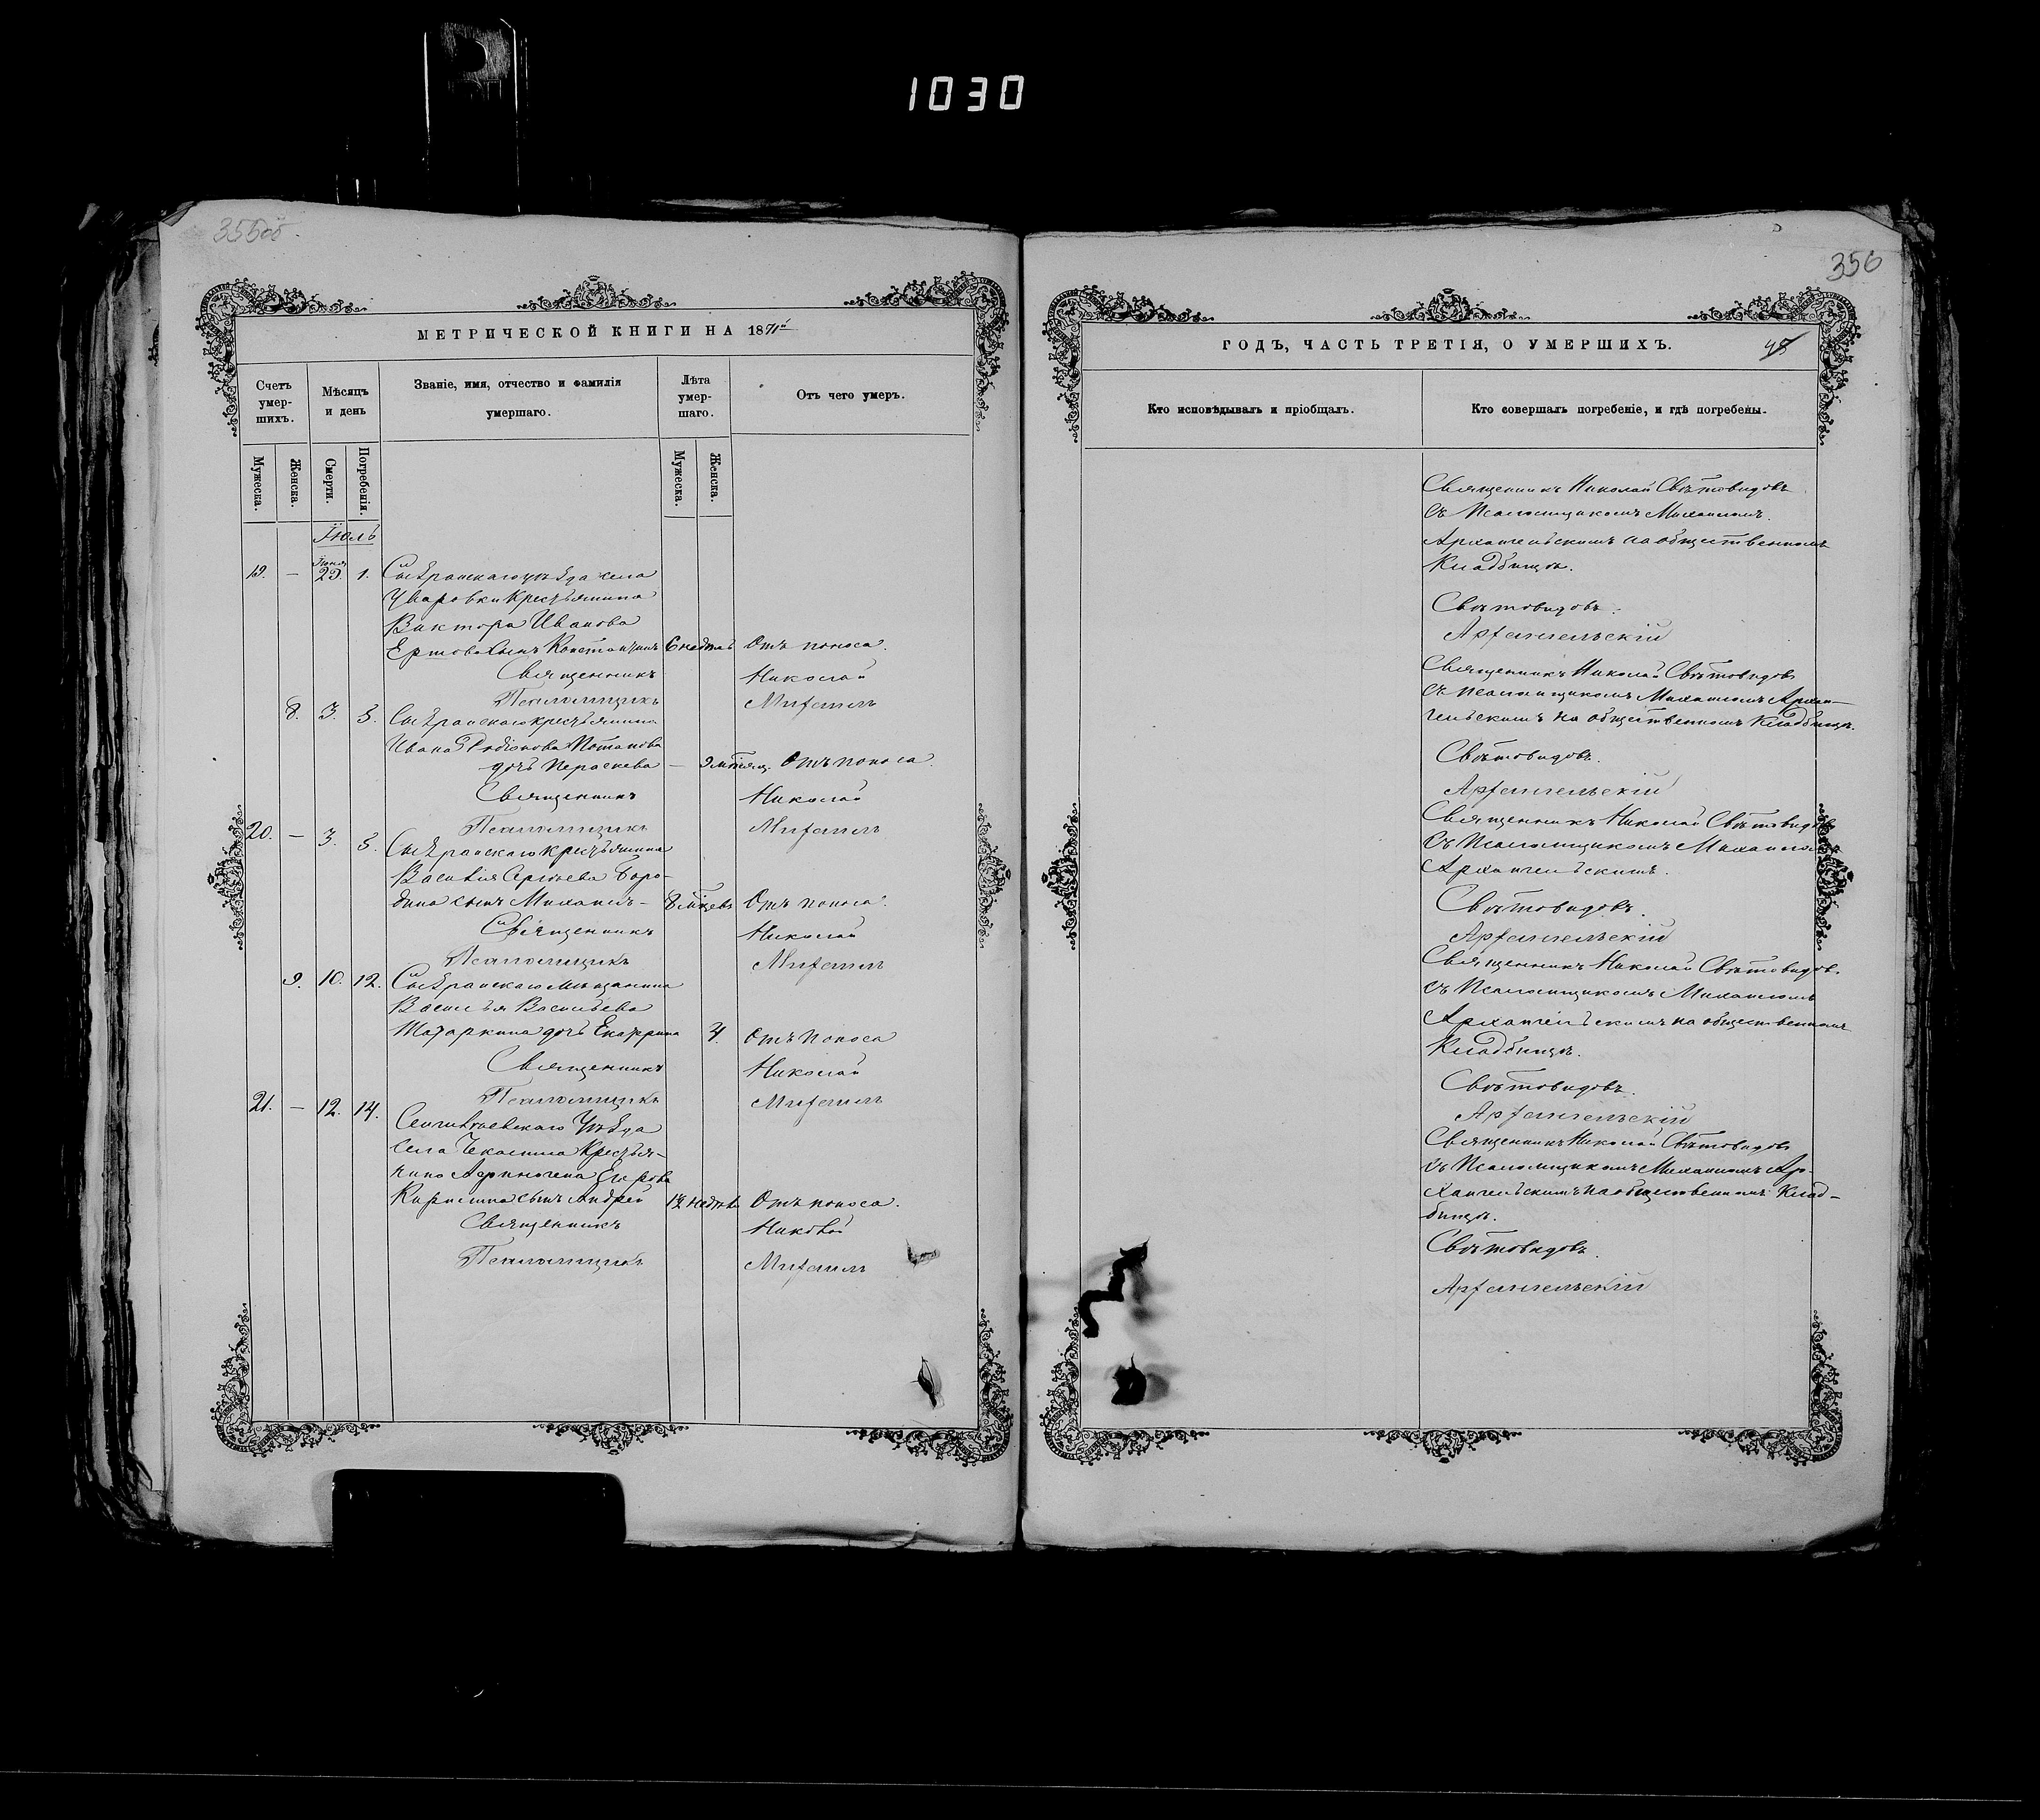 1030
355об.
МЕТРИЧЕСКОЙ КНИГИ НА 1871й
Счетъ умер-шихъ.
Мѣсяцъ и день
Званіе, имя, отчество и фамилія умершаго.
Лѣта умер-шаго.
Отъ чего умеръ.
Мужеска.
Женска.
Смерти.
Погребенія.
Мужеска.
Женска.
Іюль
19. — Іюня 29. 1. Сызранскаго уѣзда села
Уваровки Крестьянина
Виктора Иванова
Ершова сынъ Константинъ 6 недѣль Отъ поноса.
Священникъ Николай
Псаломщикъ Михаилъ
8. 3. 5. Сызранскаго крестьянина
Ивана Родіонова Потапова
дочь Параскева — 9 мѣсяц. Отъ поноса.
Священникъ Николай
Псаломщикъ Михаилъ
20. — 3. 5. Сызранскаго крестьянина
Василія Сергѣева Боро-
дина сынъ Михаилъ — 8 мѣсцевъ Отъ поноса.
Священникъ Николай
Псаломщикъ Михаилъ
9. 10. 12. Сызранскаго мѣщанина
Василья Васильева
дочь Екатерина 4. Отъ поноса
Священникъ Николай
Псаломщикъ Михаилъ
21. — 12. 14. Сенгилеевскаго Уѣзда
села Крестья-
нина Егорова
сынъ Андрей 12 недѣль Отъ поноса.
Священникъ Николай
Псаломщикъ Михаилъ
356
ГОДЪ, ЧАСТЬ ТРЕТІЯ, О УМЕРШИХЪ.
Кто исповѣдывалъ и пріобщалъ.
Кто совершалъ погребеніе, и гдѣ погребены.
Священникъ Николай Свѣтовидовъ
съ Псаломщикомъ Михаиломъ
Архангельскимъ на общественномъ
Кладбищѣ.
Свѣтовидовъ.
Архангельскій
Священникъ Николай Свѣтовидовъ
съ псаломщикомъ Михаиломъ Архан-
гельскимъ на общественномъ Кладбищѣ.
Свѣтовидовъ.
Архангельскій
Священникъ Николай Свѣтовидовъ
съ Псаломщикомъ Михаиломъ
Архангельскимъ.
Свѣтовидовъ.
Архангельскій
Священникъ Николай Свѣтовидовъ
съ Псаломщикомъ Михаиломъ
Архангельскимъ на общественномъ
Кладбищѣ.
Свѣтовидовъ.
Архангельскій
Священникъ Николай Свѣтовидовъ
съ Псаломщикомъ Михаиломъ Ар-
хангельскимъ на общественномъ Клад-
бищѣ.
Свѣтовидовъ.
Архангельскій